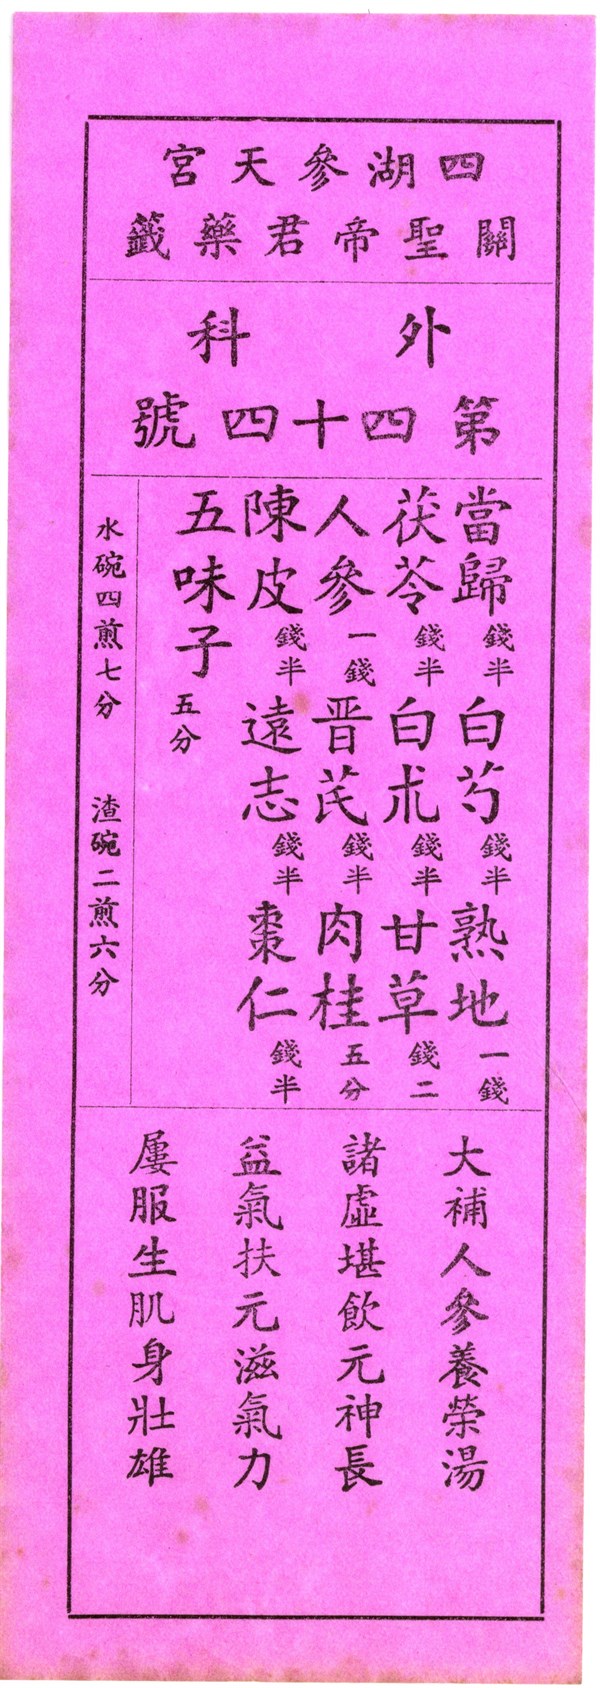 四湖參天宮
關聖帝君藥籤
外科
第四十四號
當歸錢半 白芍錢半 熟地一錢
茯苓錢半 白朮錢半 甘草錢二
人參一錢 晋芪錢半 肉桂五分
陳皮錢半 遠志錢半 棗仁錢半
五味子五分
水碗四煎七分 渣碗二煎六分
大補人參養榮湯
諸虛堪飲元神長
益氣扶元滋氣力
屢服生肌身壯雄